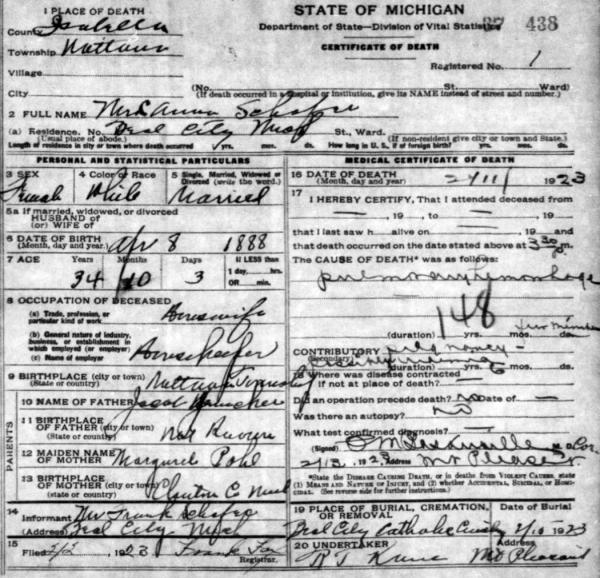 1 PLACE OF DEATH
STATE OF MICHIGAN
County Isabella
Department of State—Division of Vital Statistics
37 438
Township Nottawa
CERTIFICATE OF DEATH
Village
Registered No. 1
City
(No. St. Ward)
(If death occurred in a hospital or institution, give its NAME instead of street and number.)
2 FULL NAME Mrs Anna Schafer
(a) Residence. No. Beal City Mich St., Ward.
(Usual place of abode.) (If non-resident give city or town and State.)
Length of residence in city or town where death occurred yrs. mos. ds. How long in U. S., if of foreign birth? yrs. mos. ds.
PERSONAL AND STATISTICAL PARTICULARS
3 SEX 4 Color or Race 5 Single, Married, Widowed or Divorced (write the word.)
Female White Married
5a If married, widowed, or divorced
HUSBAND of
(or) WIFE of
6 DATE OF BIRTH (Month, day and year.) Apr 8 1888
7 AGE Years Months Days If LESS than
34 10 3 1 day,....hrs.
OR....min.
8 OCCUPATION OF DECEASED
(a) Trade, profession, or particular kind of work Housewife
(b) General nature of industry, business, or establishment in which employed (or employer)
(c) Name of employer Housekeeper
9 BIRTHPLACE (city or town) (State or country) Nottawa Township
PARENTS
10 NAME OF FATHER Jacob
11 BIRTHPLACE OF FATHER (city or town) (State or country) Not Known
12 MAIDEN NAME OF MOTHER Margaret Pohl
13 BIRTHPLACE OF MOTHER (city or town) (State or country) Clinton Co Mich
14 Informant Mr Frank Schafer
(Address) Beal City Mich
15 Filed 2/2 1923 Frank Fox
Registrar.
MEDICAL CERTIFICATE OF DEATH
16 DATE OF DEATH (Month, day and year) 2/11/ 1923
17
I HEREBY CERTIFY, That I attended deceased from
, 19 , to , 19
that I last saw h alive on , 19
and that death occurred on the date stated above at 3 30 P m.
The CAUSE OF DEATH* was as follows:
pulmonary hemorrhage
148
few minutes
(duration) yrs. mos. ds.
CONTRIBUTORY
(Secondary)
(duration) yrs. mos. ds.
18 Where was disease contracted
if not at place of death?
Did an operation precede death? no Date of
Was there an autopsy? no
What test confirmed diagnosis?
(Signed)
2/13, 1923, Address Mt Pleasant
*State the DISEASE CAUSING DEATH, or in deaths from VIOLENT CAUSES, state
(1) MEANS AND NATURE OF INJURY, and (2) whether ACCIDENTAL, SUICIDAL, or HOMICIDAL. (See reverse side for further instructions.)
19 PLACE OF BURIAL, CREMATION, OR REMOVAL Date of Burial
Beal City Catholic 2/15 1923
20 UNDERTAKER Address
Mt Pleasant